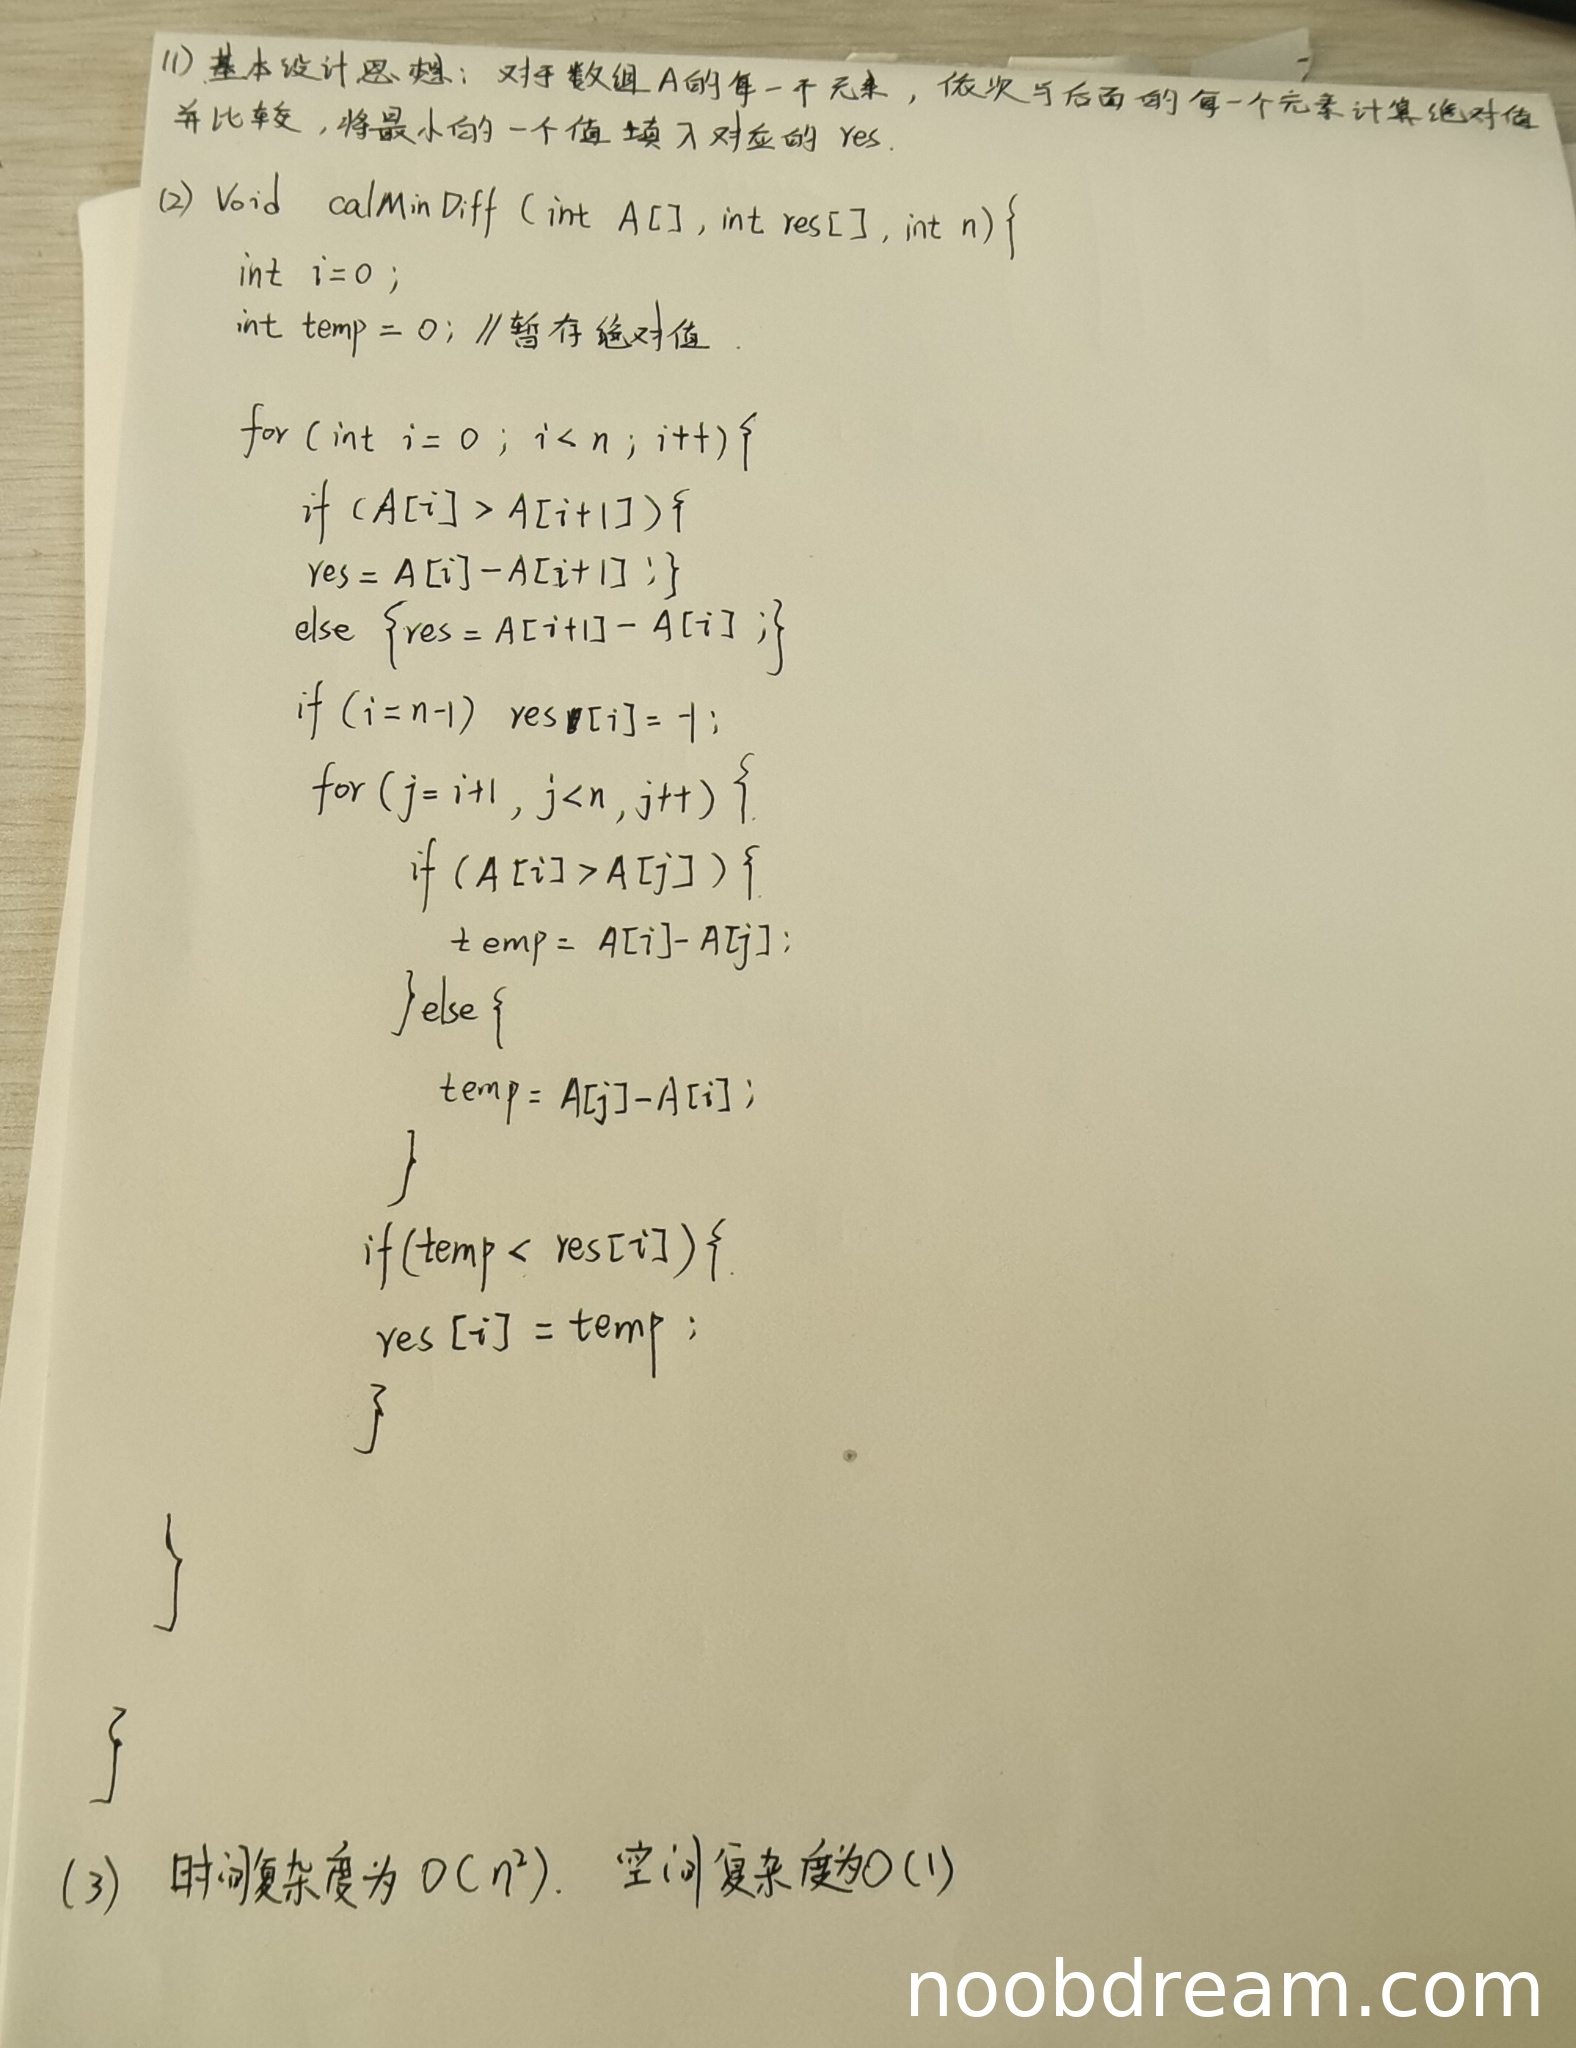 (1) 基本设计思想：对于数组A的每一个元素，依次与后面的每一个元素计算绝对值
并比较，将最小的一个值填入对应的 res.
(2) Void calMinDiff (int A[], int res[], int n){
int i=0;
int temp = 0; //暂存绝对值.
for (int i= 0 ; i< n ; i++){
if (A[i] > A[i+1]){
res = A[i]-A[i+1];}
else {res = A[i+1] - A[i] ;}
if (i=n-1) res[i]= -1;
for (j= i+1, j<n, j++) {
if (A[i]>A[j]) {
temp = A[i]-A[j];
}else {
temp = A[j]-A[i];
}
if(temp < res[i]){
res [i] = temp ;
}
}
}
(3) 时间复杂度为 O(n²). 空间复杂度为O(1)
noobdream.com